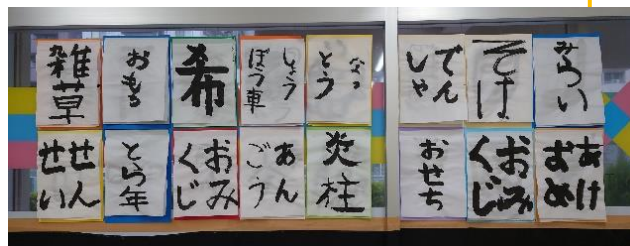 雑草
希
しょう
ぼう車
なっ
とう
でん
しゃ
そば
みらい
せん
せい
とら年
おみ
くじ
あん
ごう
炎柱
おせち
おみ
くじ
あけ
おめ